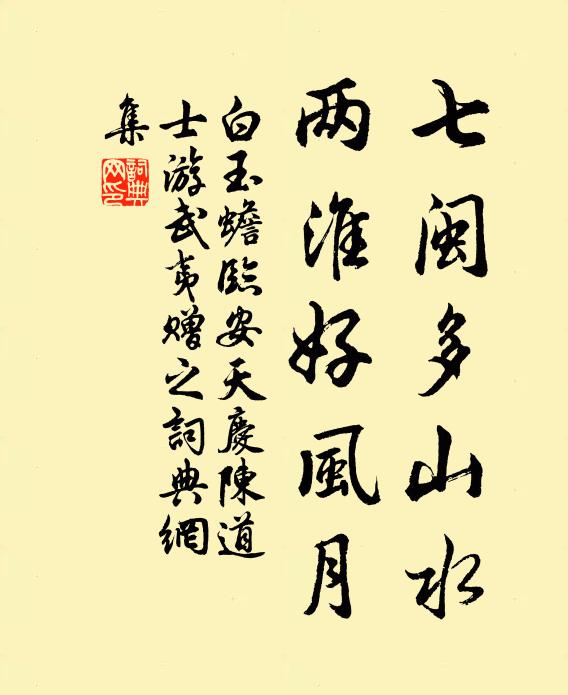 七闽多山水
两淮好風月
白玉蟾臨安天慶陳道
士游武夷赠之詞典網
集
詞典
网印